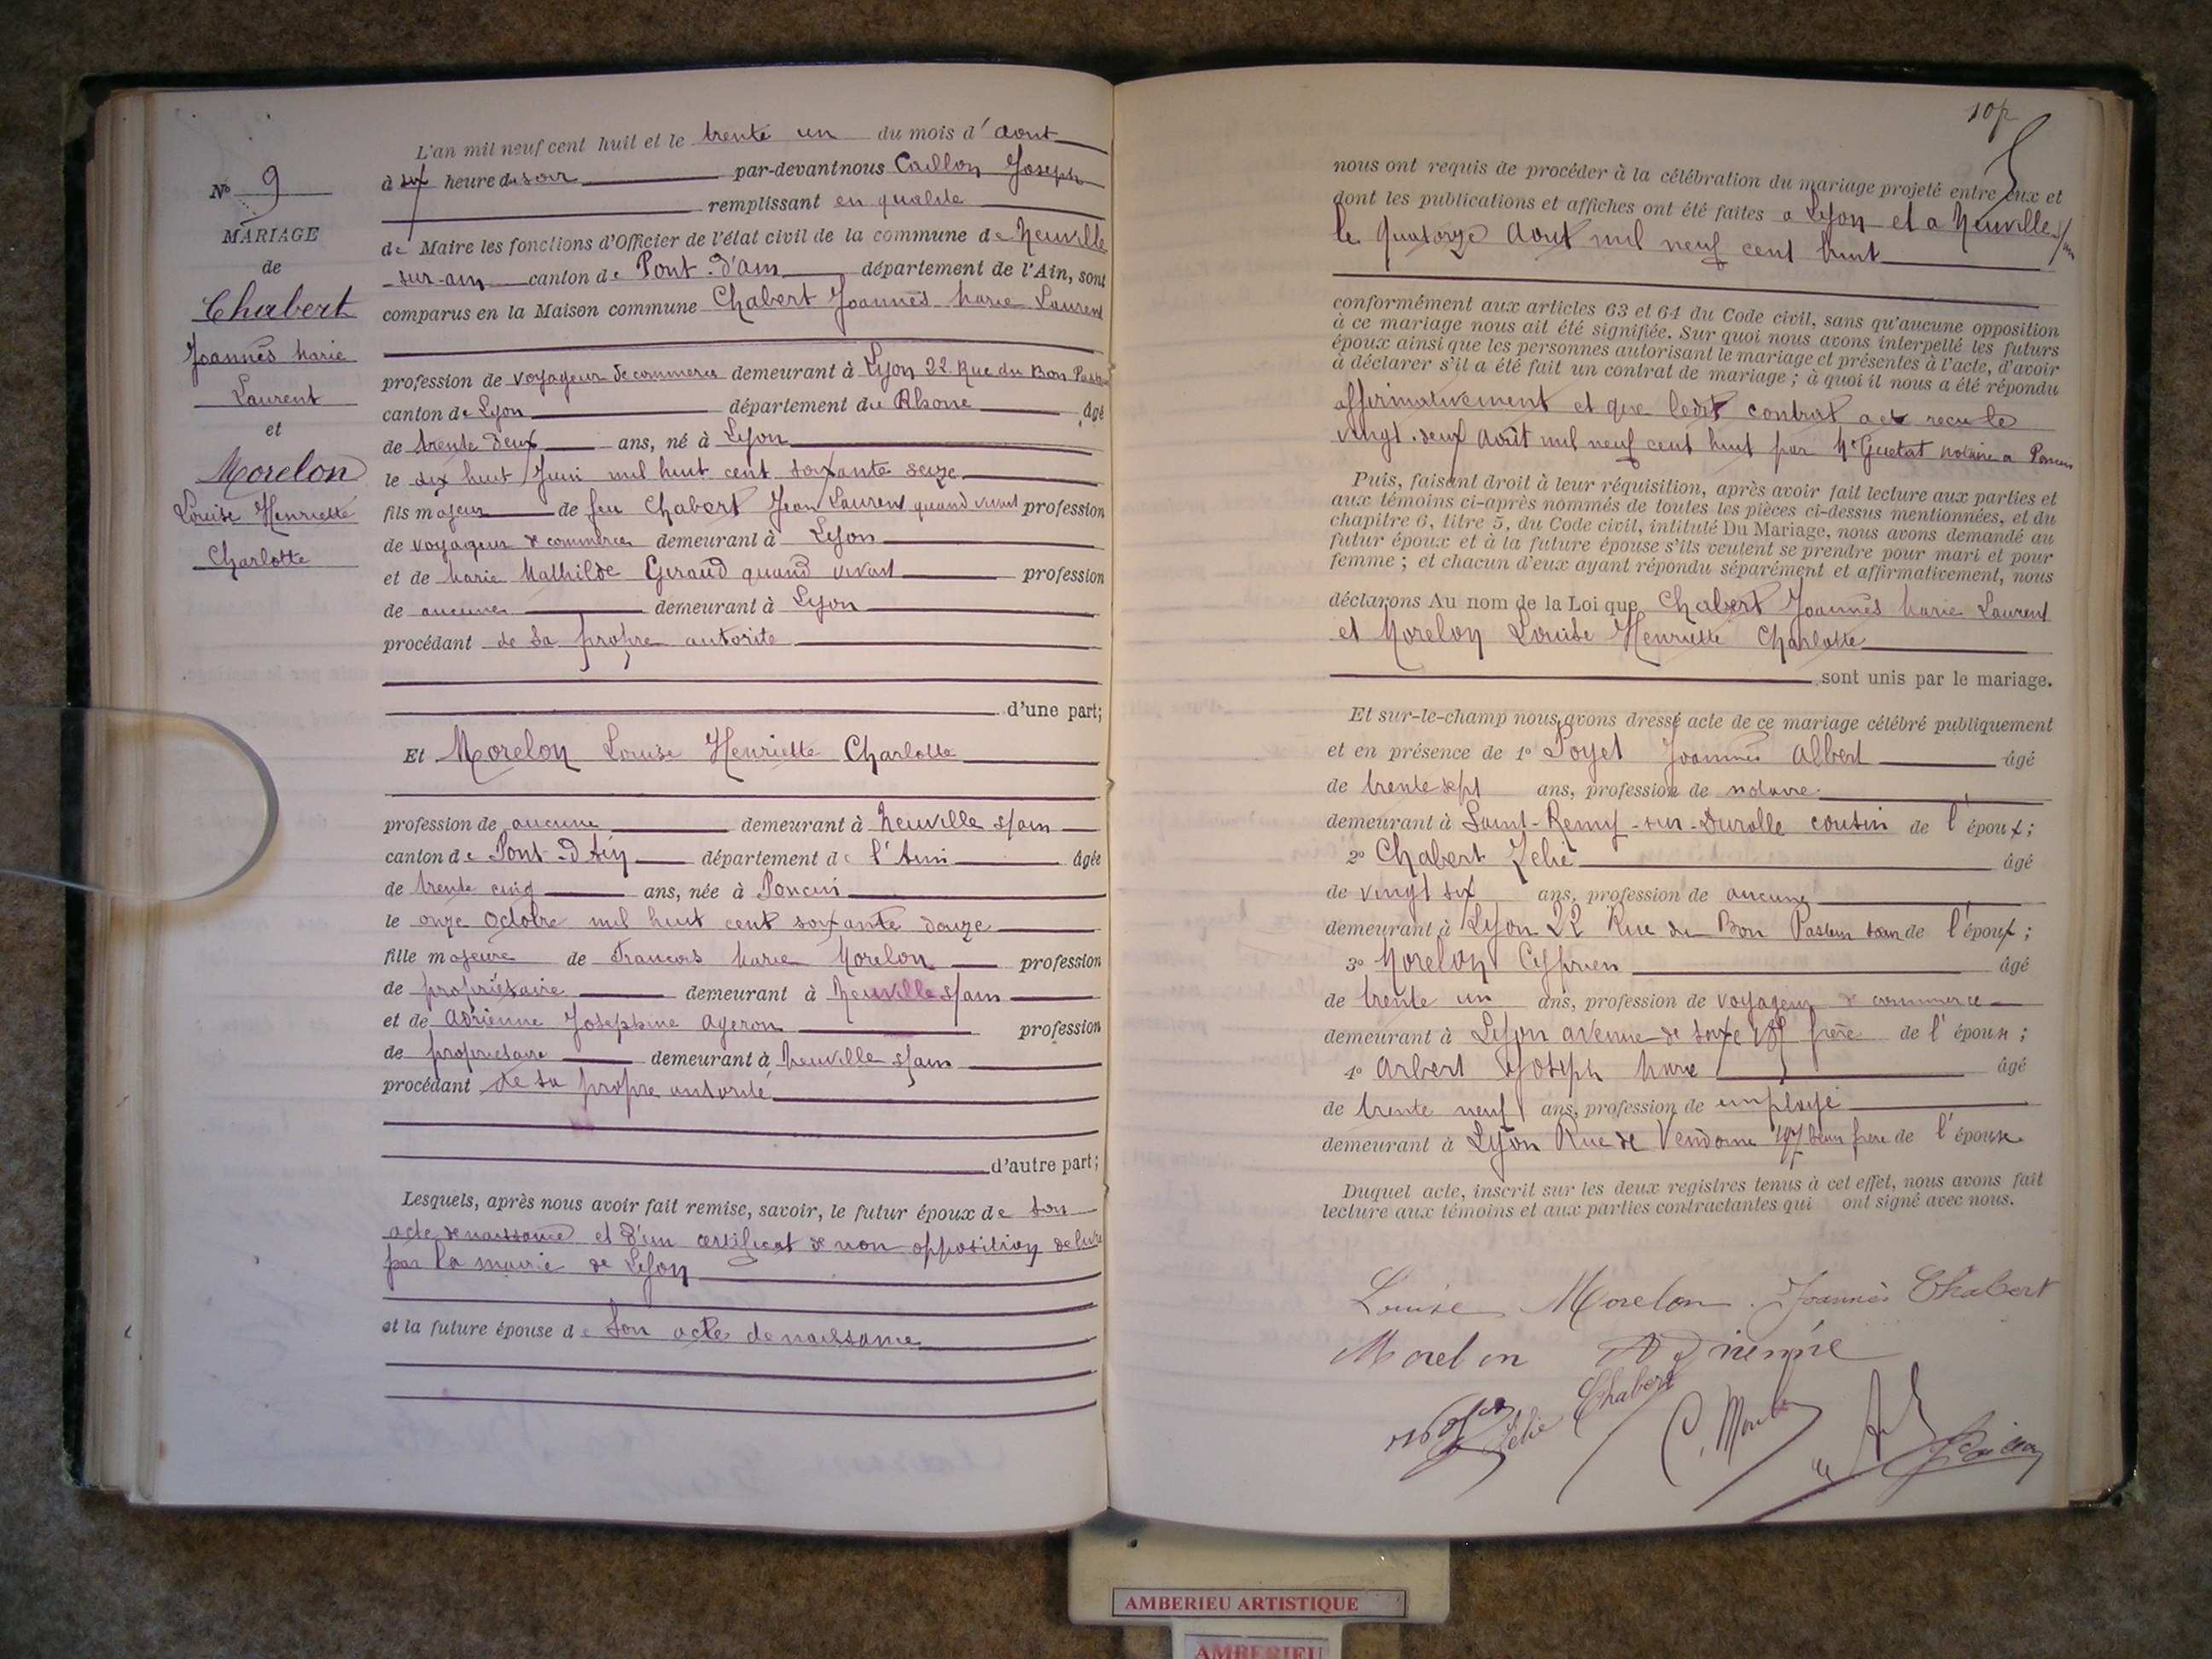 N° 9
MARIAGE
de
Chabert
Joannès Marie
Laurent
et
Morelon
Louise Henriette
Charlotte
L'an mil neuf cent huit et le trente un du mois d'aout
à six heure du soir par-devant nous Caillon Joseph
remplissant en qualité
de Maire les fonctions d'Officier de l'état civil de la commune de Neuville
sur-ain canton de Pont-d'ain département de l'Ain, sont
comparus en la Maison commune Chabert Joannès Marie Laurent
profession de voyageur de commerce demeurant à Lyon 22 Rue du Bon Pasteur
canton de Lyon département du Rhone âgé
de trente deux ans, né à Lyon
le dix huit Juin mil huit cent soixante seize
fils majeur de feu Chabert Jean Laurent quand vivant profession
de voyageur de commerce demeurant à Lyon
et de Marie Mathilde Geraud quand vivant profession
de aucune demeurant à Lyon
procédant de sa propre autorité
d'une part;
Et Morelon Louise Henriette Charlotte
profession de aucune demeurant à Neuville s/ain
canton de Pont-d'Ain département de l'Ain âgée
de trente cinq ans, née à Poncin
le onze Octobre mil huit cent soixante douze
fille majeure de Francois Marie Morelon profession
de propriétaire demeurant à Neuville s/ain
et de Adrienne Josephine Ageron profession
de propriétaire demeurant à Neuville s/ain
procédant de sa propre autorité
d'autre part;
Lesquels, après nous avoir fait remise, savoir, le futur époux de son
acte de naissance et d'un certificat de non opposition délivré
par la mairie de Lyon
et la future épouse de son acte de naissance
nous ont requis de procéder à la célébration du mariage projeté entre eux et
dont les publications et affiches ont été faites a Lyon et a Neuville s/ain
le quatorze Aout mil neuf cent huit
conformément aux articles 63 et 64 du Code civil, sans qu'aucune opposition
à ce mariage nous ait été signifiée. Sur quoi nous avons interpellé les futurs
époux ainsi que les personnes autorisant le mariage et présentes à l'acte, d'avoir
à déclarer s'il a été fait un contrat de mariage; à quoi il nous a été répondu
affirmativement et que ledit contrat a été recu le
vingt-deux août mil neuf cent huit par Me Guetat notaire a Poncin
Puis, faisant droit à leur réquisition, après avoir fait lecture aux parties et
aux témoins ci-après nommés de toutes les pièces ci-dessus mentionnées, et du
chapitre 6, titre 5, du Code civil, intitulé Du Mariage, nous avons demandé au
futur époux et à la future épouse s'ils veulent se prendre pour mari et pour
femme; et chacun d'eux ayant répondu séparément et affirmativement, nous
déclarons Au nom de la Loi que Chabert Joannès Marie Laurent
et Morelon Louise Henriette Charlotte
sont unis par le mariage.
Et sur-le-champ nous avons dressé acte de ce mariage célébré publiquement
et en présence de 1° Poyet Joannès Albert âgé
de trente sept ans, profession de notaire
demeurant à Saint-Remy-sur-Durolle cousin de l'époux;
2° Chabert Zelie âgé
de vingt six ans, profession de aucune
demeurant à Lyon 22 Rue du Bon Pasteur sœur de l'époux;
3° Morelon Cyprien âgé
de trente un ans, profession de voyageur de commerce
demeurant à Lyon avenue de Saxe frère de l'épouse;
4° Arbert Joseph Marie âgé
de trente neuf ans, profession de employé
demeurant à Lyon Rue de Vendome 197 beau frère de l'épouse
Duquel acte, inscrit sur les deux registres tenus à cet effet, nous avons fait
lecture aux témoins et aux parties contractantes qui ont signé avec nous.
Louise Morelon Joannès Chabert
Morelon Adrienne
Zélie Chabert
AMBERIEU ARTISTIQUE
AMBERIEU